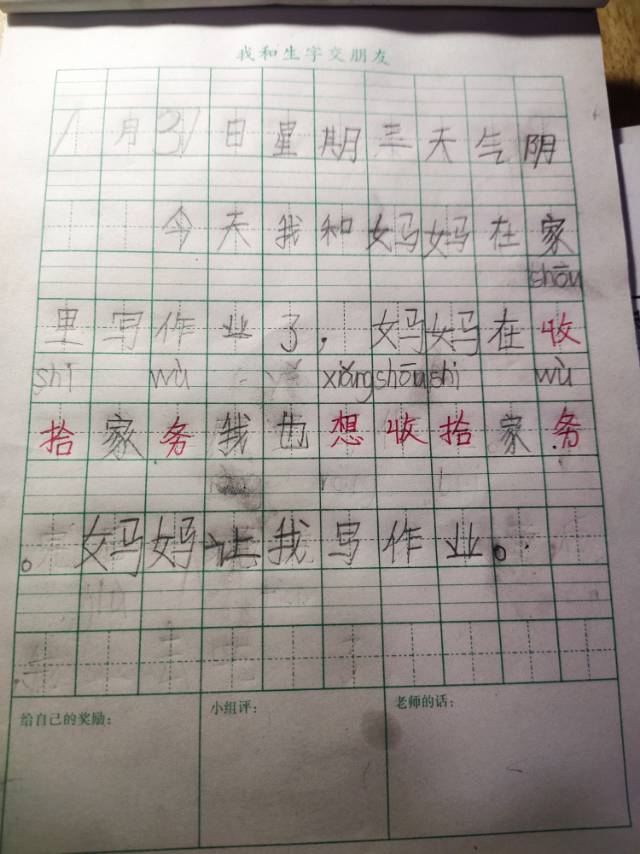 我和生字交朋友
1月31日星期三天气阴
今天我和妈妈在家
shōu
里写作业了，妈妈在收
shí wù xiǎng shōu shí wù
拾家务我也想收拾家务
。妈妈让我写作业。
给自己的奖励： 小组评： 老师的话：